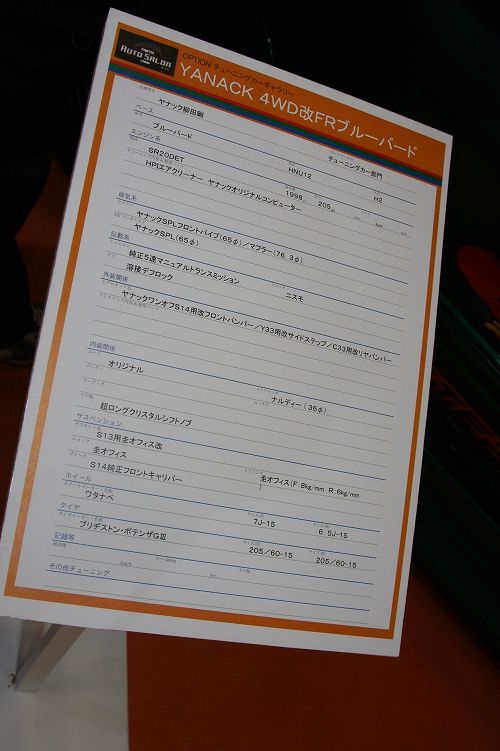 TOKYO
AUTO SALON
OPTION チューニングカーギャラリー
YANACK 4WD改FRブルーバード
ヤナック柳田剛
チューニングカー部門
ベース
ブルーバード
HNU12
H2
エンジン系
SR20DET
1998
205
HPIエアクリーナー ヤナックオリジナルコンピューター
排気系
マフラー
ヤナックSPLフロントパイプ(65φ)/マフラー(76.3φ)
ヤナックSPL(65φ)
伝動系
純正5速マニュアルトランスミッション
ニスモ
溶接デフロック
外装関係
ヤナックワンオフS14用改フロントバンパー/Y33用改サイドステップ/C33用改リヤバンパー
内装関係
シート
オリジナル
ナルディー(36φ)
その他
超ロングクリスタルシフトノブ
サスペンション
S13用圭オフィス改
圭オフィス
圭オフィス(F 8kg/mm R 6kg/mm
)
S14純正フロントキャリパー
ホイール
ワタナベ
7J-15
6.5J-15
タイヤ
ブリヂストン・ポテンザGⅢ
205/60-15
205/60-15
記録等
km/h
その他チューニング